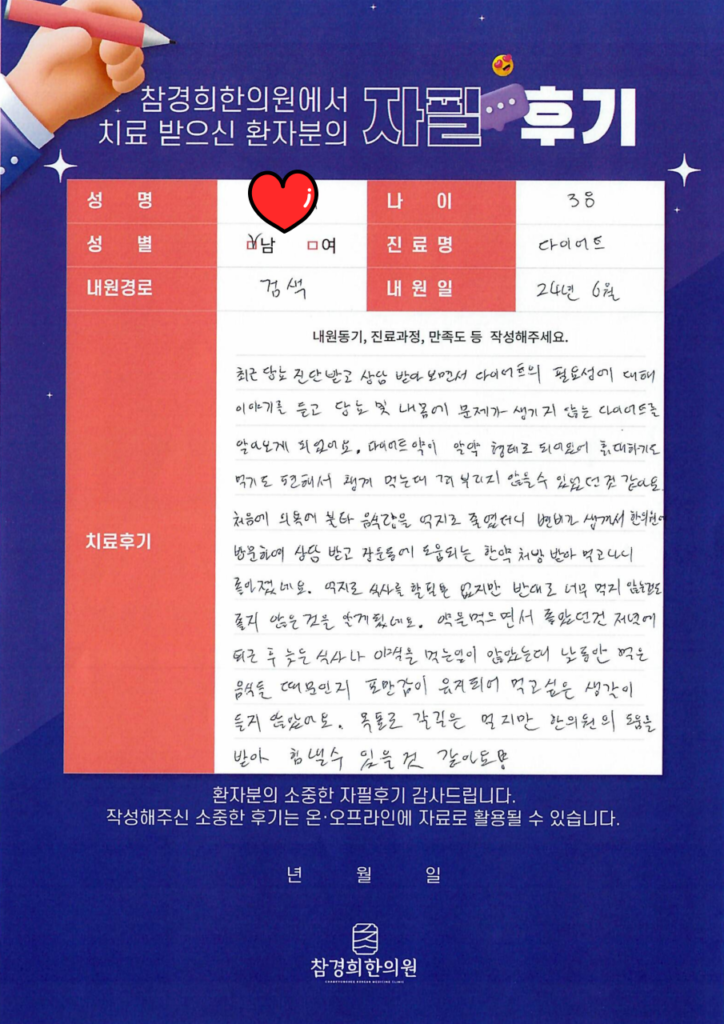 참경희한의원에서
치료 받으신 환자분의 자필 후기
성 명
나 이 38
성 별 남 여
진료명 다이어트
내원경로 검색
내원일 24년 6월
내원동기, 진료과정, 만족도 등 작성해주세요.
치료후기
최근 당뇨 진단받고 상담 받아보면서 다이어트의 필요성에 대해
이야기를 듣고 당뇨 및 내몸에 문제가 생기지 않는 다이어트를
알아보게 되었어요. 다이어트약이 알약 형태로 되어있어 휴대하기도
먹기도 편해서 챙겨 먹는데 꺼려지지 않을수 있었던것 같아요
처음에 의욕에 불타 음식량을 억지로 줄였더니 변비가 생겨서 한의원에
방문하여 상담 받고 장운동에 도움되는 한약 처방 받아 먹고나니
좋아졌네요. 억지로 식사를 할필요 없지만 반대로 너무 먹지 않는것도
좋지 않은것을 알게됐네요. 약을먹으면서 좋았던건 저녁에
퇴근 후 늦은 식사나 야식을 먹는일이 많았는데 낮동안 먹은
음식들 때문인지 포만감이 유지되어 먹고싶은 생각이
들지 않았어요. 목표로 갈길은 멀지만 한의원의 도움을
받아 힘낼수 있을것 같아요
환자분의 소중한 자필후기 감사드립니다.
작성해주신 소중한 후기는 온·오프라인에 자료로 활용될 수 있습니다.
년 월 일
참경희한의원